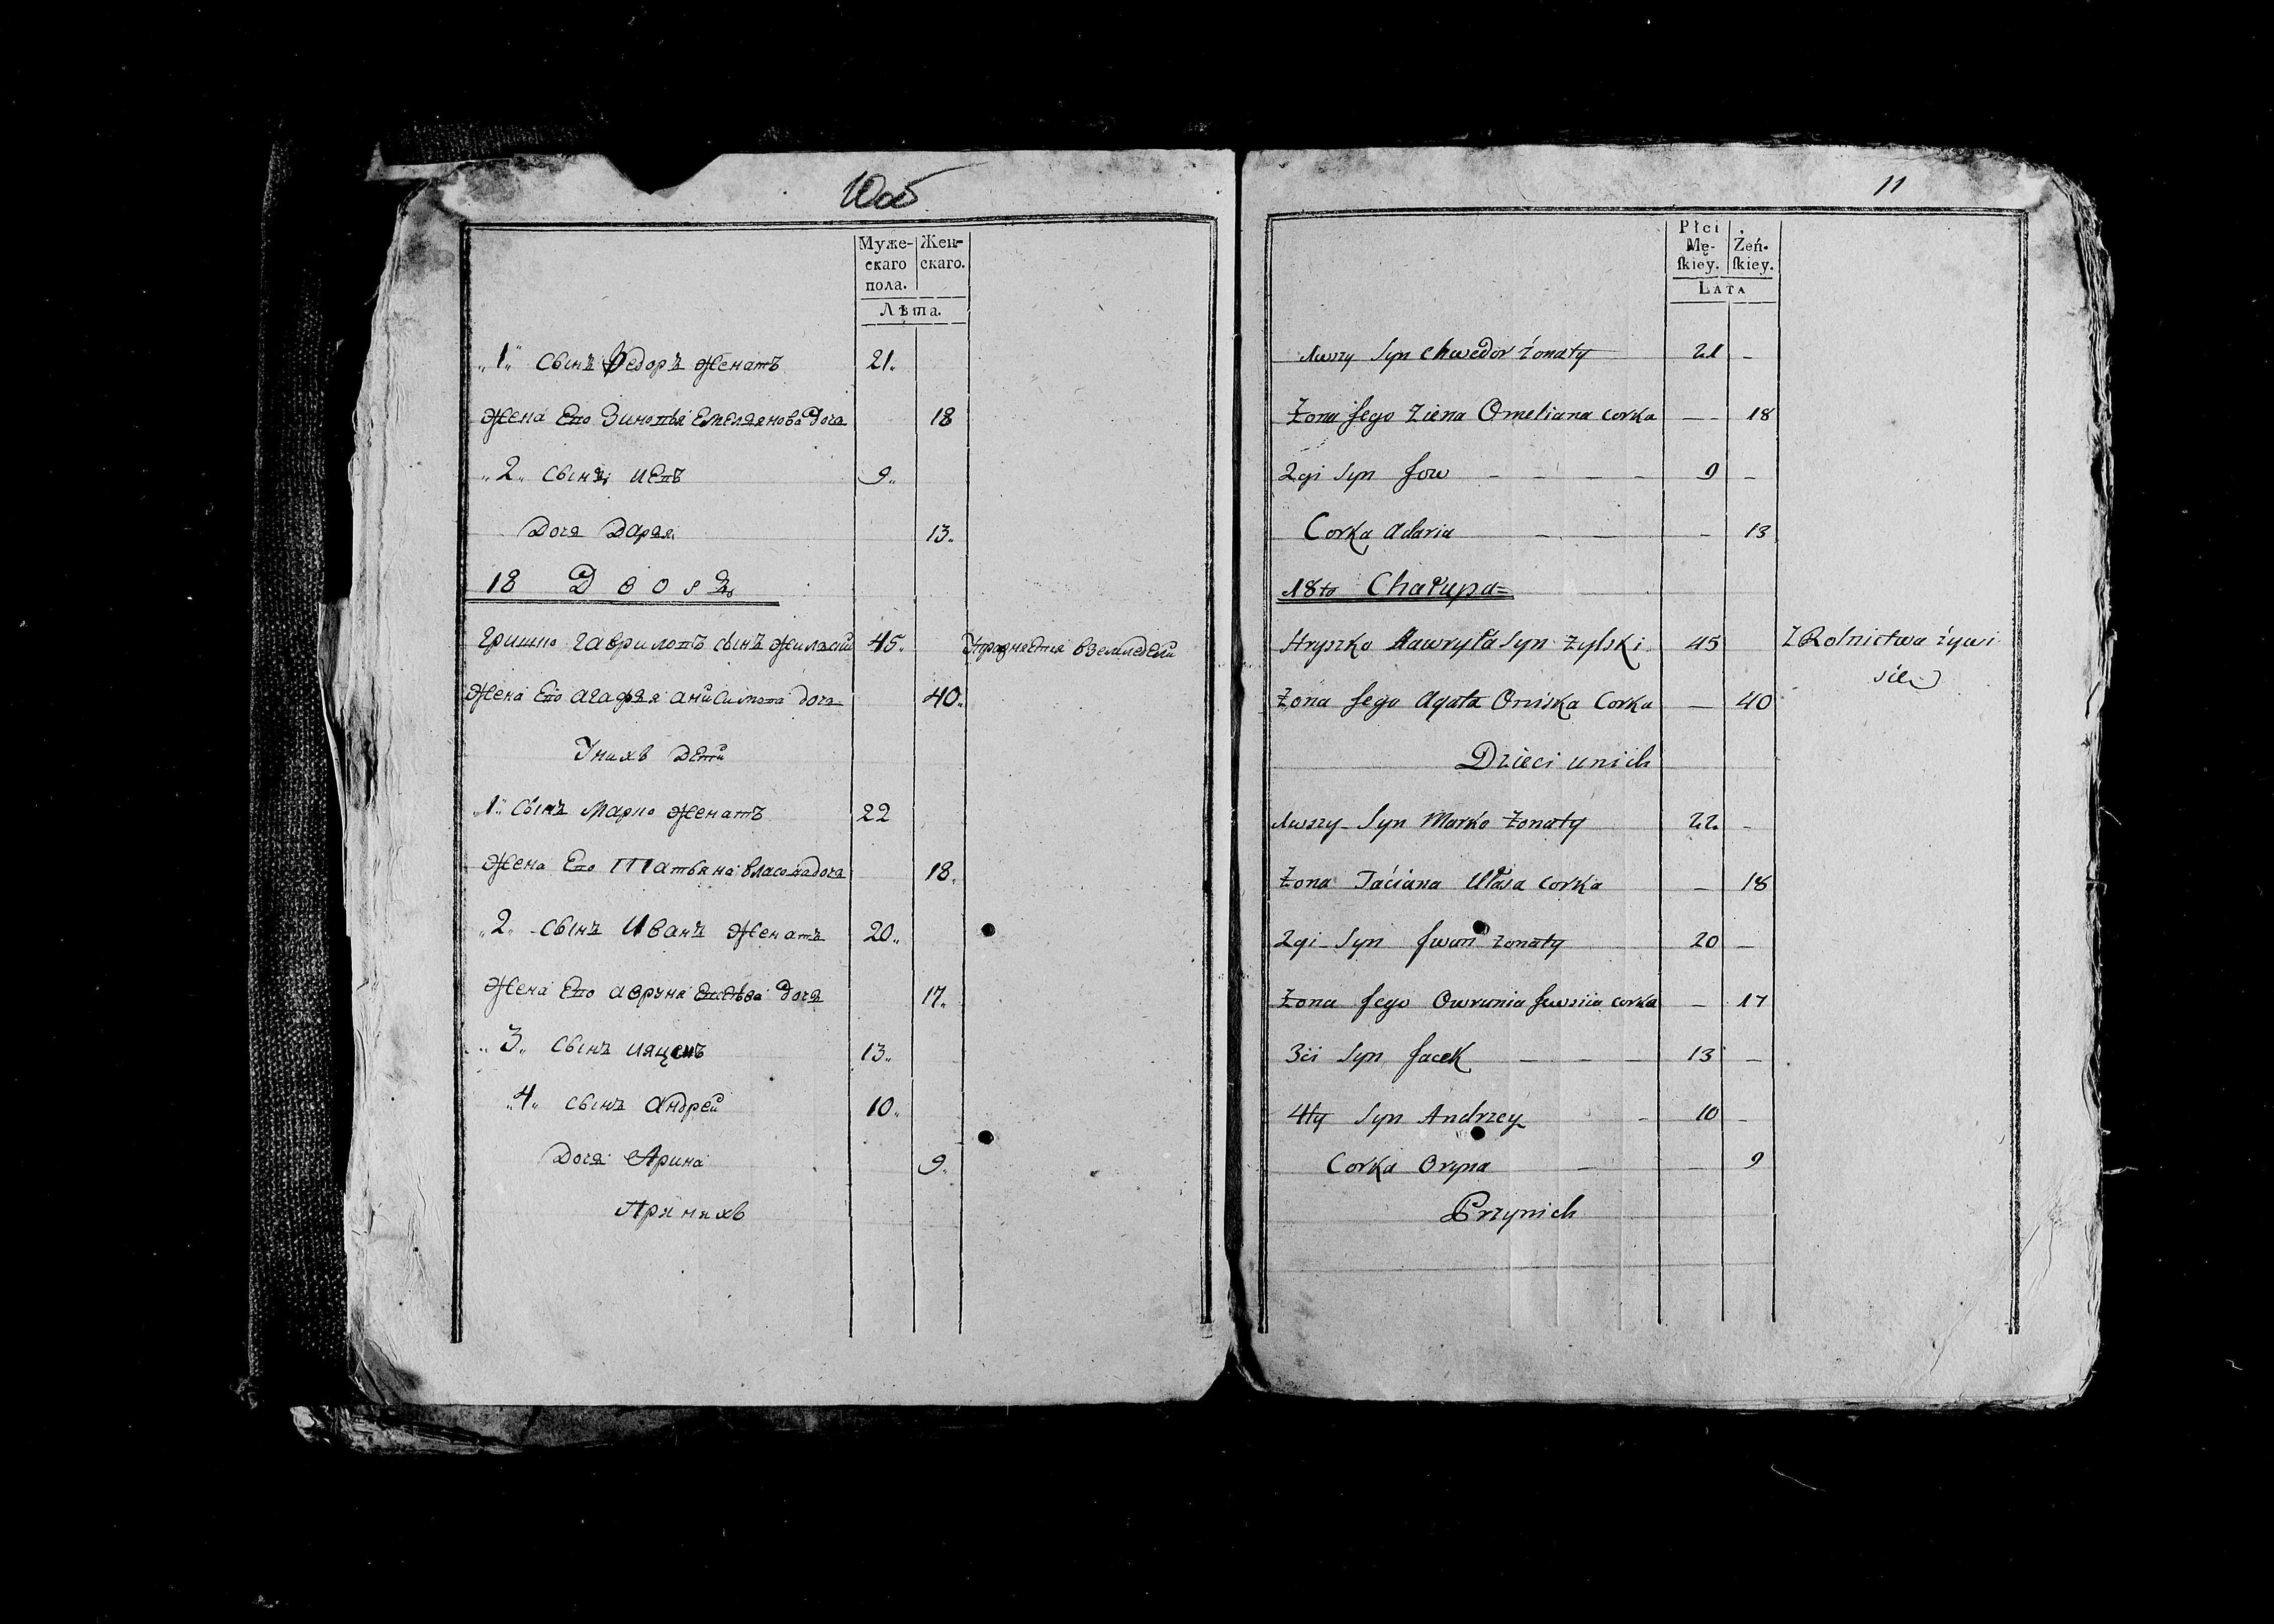 10об
Муже-
скаго
пола.
Жен-
скаго.
Лѣта.
„1„ Сынъ Федоръ женатъ 21.
Жена Его Зиновья Емелянова Дочь 18
„2„ Сынъ 9.
Дочь Даря 13.
18 Дворъ
Гришко Гавриловъ сынъ 45.
Жена Его Агафья Анисимова дочь 40.
У нихъ Дети
„1„ Сынъ Марко женатъ 22
Жена Его Татьяна Власова дочь 18.
„2„ Сынъ Иванъ женатъ 20„
Жена Его дочь 17.
„3„ Сынъ Ияцекъ 13„
„4„ Сынъ Андрей 10„
Дочь Арина 9.
При нихъ
11
Płci
Mę-
skiey.
Żeń-
skiey.
Lata
1wszy Syn Chwedor żonaty 21 –
Żona Jego Ziena Omeliana Corka — 18
2gi Syn Jow – – – – 9 –
Corka Adaria — — – 13
18to Chałupa=
Hryszko Hawryła Syn Zylski 45
Z Rolnictwa żywi
się
Żona Jego Agata Oniska Corka — 40
Dzieci unich
1wszy Syn Marko Żonaty 22. –
Żona Taciana Ułasa Corka — 18
2gi Syn Iwan żonaty 20 –
Żona Jego Owrunia corka – 17
3ci Syn Jacek — — – 13 –
4ty Syn Andrzey – 10 –
Corka Oryna — — 9
Przynich